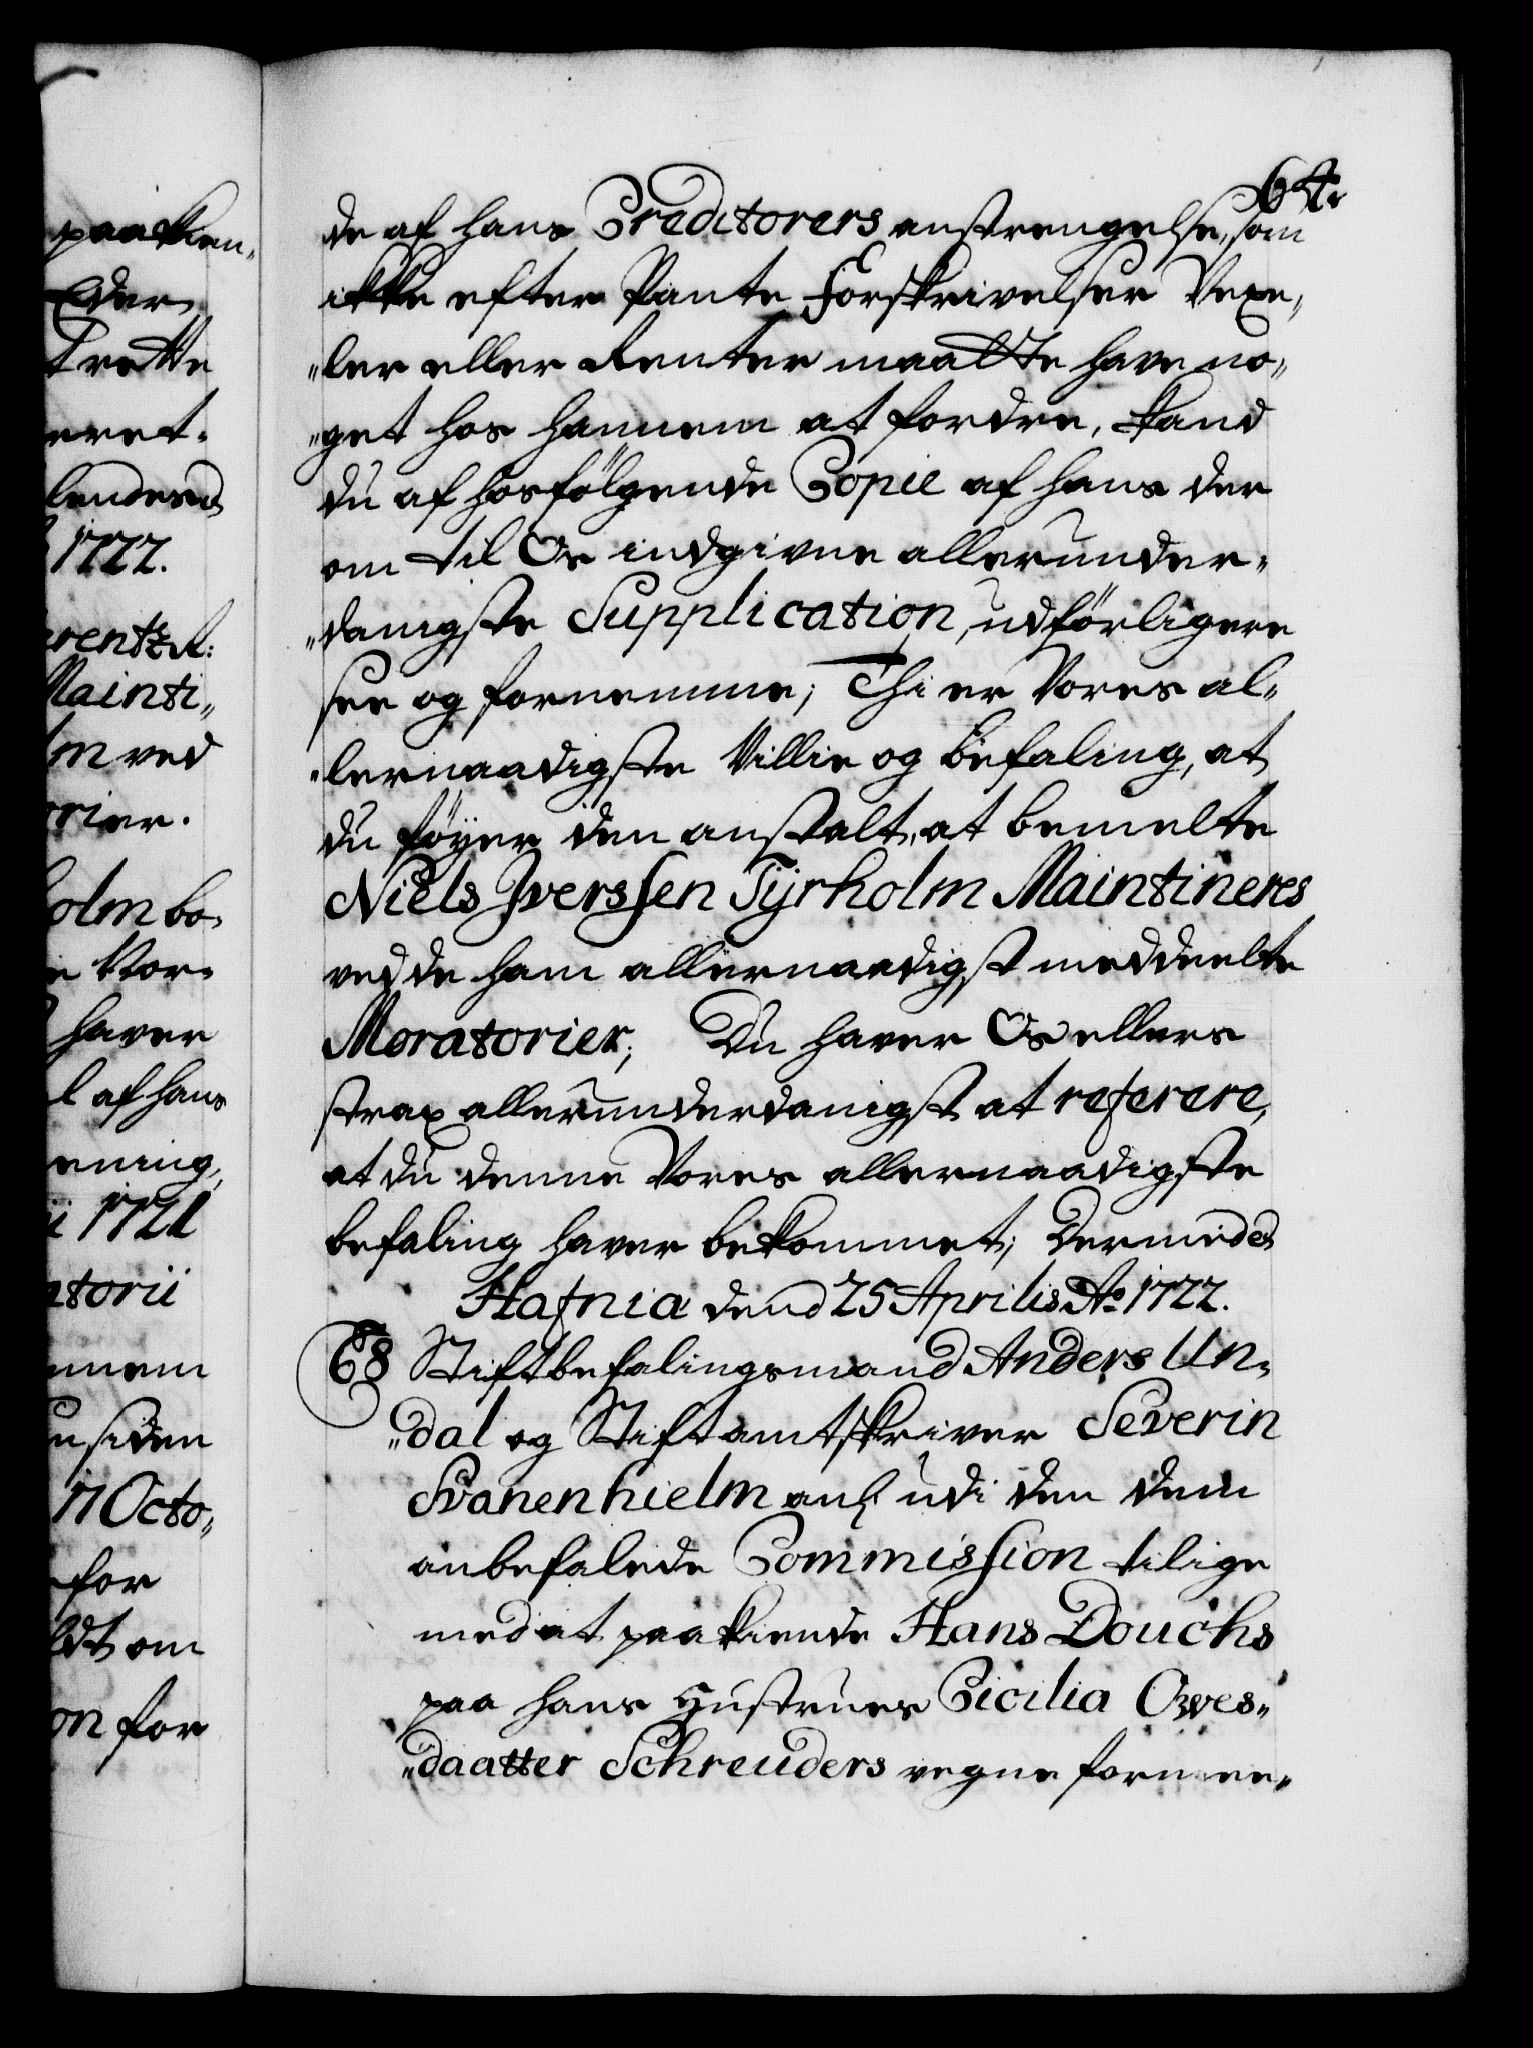 paakien„
Eder
Trette
eret.
lendes
1722.
rentz A:
Mainti„
lm ved
orier.
holm bo„
e Vor„
haver
l af hans
ening,
ii 1721
atorii
nnem
u siden
17 Octo„
for
ldt om
on for
64.
de af hans Creditorers anstrengelse, som
ikke efter Pante Forskrivelser Vexe„
„ler eller Renter maatte have no„
„get hos hannem at fordre, kand
du af hosfölgende Copie af hans der
om til Os indgivne allerunder„
„danigste Supplication, udförligere
see og fornemme; Thi er Vores al„
„lernaadigste Villie og befaling, at
du föyer den anstalt, at bemelte
Niels Jverssen Tyrholm Maintineres
ved de ham allernaadigst meddeelte
Moratorier; Du haver Os ellers
strax allerunderdanigst at referere,
at du denne Vores allernaadigste
befaling haver bekommet; Dermed
Hafnia dend 25 Aprilis Ao. 1722.
68 Stiftbefalingsmand Anders Un„
„dal og Stiftamtskriver Severin
Svanenhielm anl. udi den dem
anbefalede Commission tilige
med at paakiende Hans Douchs
paa hans Hustrues Cicilia Owes„
„daatter Schreuders vegne formee„